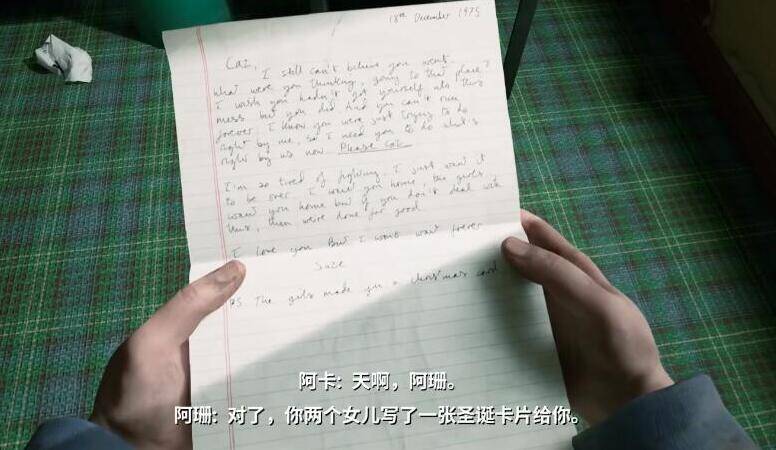 18th December 1975
Caz,
I still can't believe you went.
What were you thinking, going to that place?
I wish you hadn't got yourself into this
mess but you did. And you can't run
forever. I know you were just trying to do
right by me, so I need you to do what's
right by us now. Please Caz
I'm so tired of fighting. I just want it
to be over. I want you home, the girls
want you home but if you don't deal with
this, then we're done for good.
I love you. But I won't wait forever
Suze
PS. The girls made you a Christmas card
阿卡: 天啊，阿珊。
阿珊: 对了，你两个女儿写了一张圣诞卡片给你。